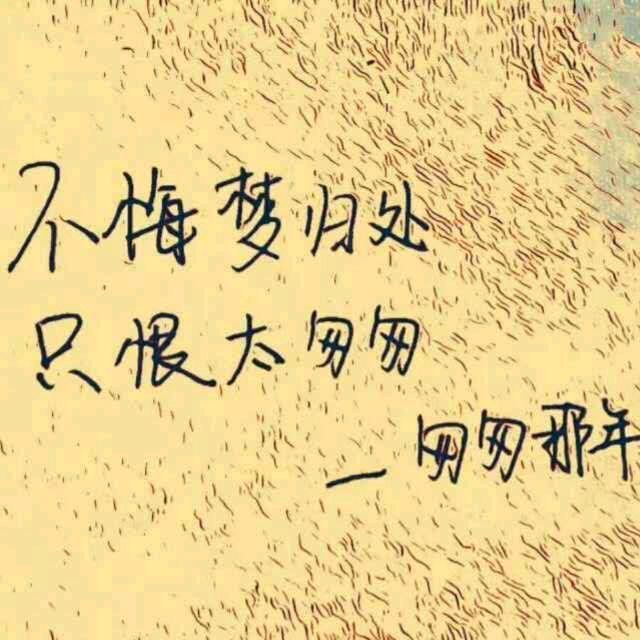 不悔梦归处
只恨太匆匆
—匆匆那年